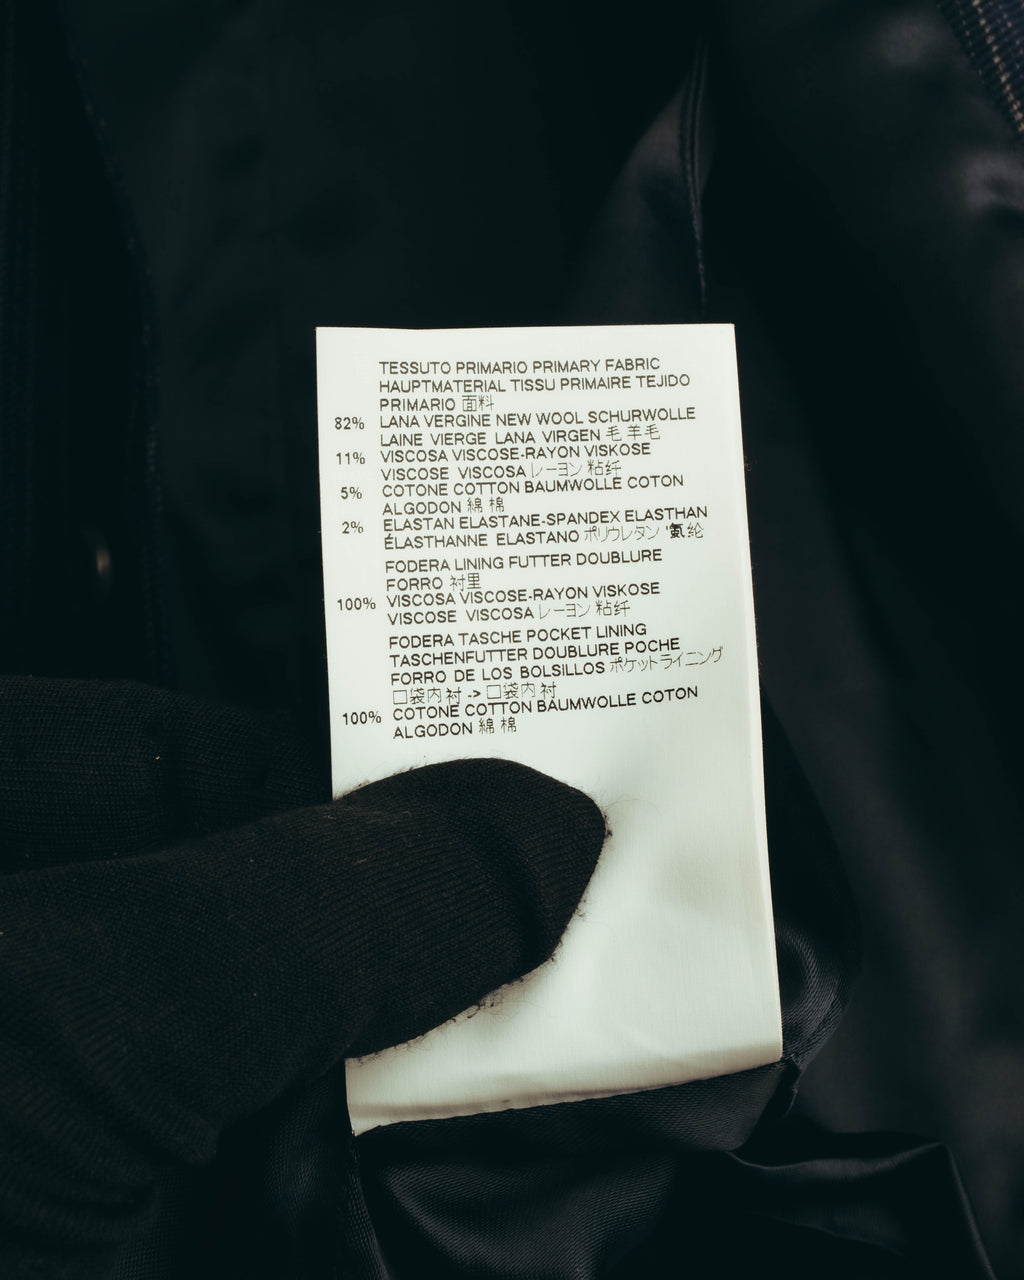 TESSUTO PRIMARIO PRIMARY FABRIC
HAUPTMATERIAL TISSU PRIMAIRE TEJIDO
PRIMARIO 面料
82% LANA VERGINE NEW WOOL SCHURWOLLE
LAINE VIERGE LANA VIRGEN 毛 羊毛
11% VISCOSA VISCOSE-RAYON VISKOSE
VISCOSE VISCOSA レーヨン 粘纤
5% COTONE COTTON BAUMWOLLE COTON
ALGODON 綿 棉
2% ELASTAN ELASTANE-SPANDEX ELASTHAN
ÉLASTHANNE ELASTANO ポリウレタン '氨纶
FODERA LINING FUTTER DOUBLURE
FORRO 衬里
100% VISCOSA VISCOSE-RAYON VISKOSE
VISCOSE VISCOSA レーヨン 粘纤
FODERA TASCHE POCKET LINING
TASCHENFUTTER DOUBLURE POCHE
FORRO DE LOS BOLSILLOS ポケットライニング
口袋内衬 -> 口袋内衬
100% COTONE COTTON BAUMWOLLE COTON
ALGODON 綿 棉